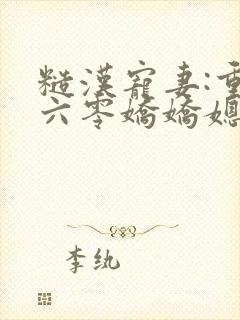 糙漢寵妻:重
六零嬌嬌媳
李紈